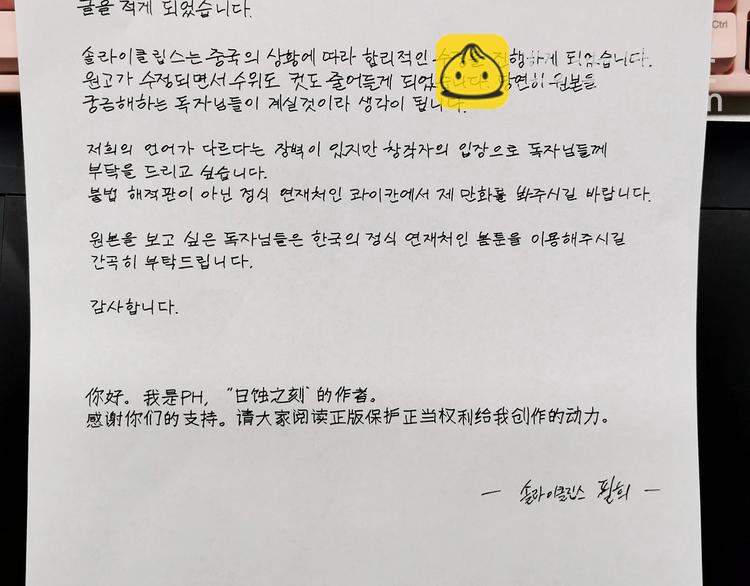 글을 적게 되었습니다.
솔라이클립스는 중국의 상황에 따라 합리적인 진행하게 되었습니다.
원고가 수정되면서 수위도 컷도 줄어들게 되었습니다. 당연히 원본을
궁금해하는 독자님들이 계실것이라 생각이 됩니다.
저희의 언어가 다르다는 장벽이 있지만 창작자의 입장으로 독자님들께
부탁을 드리고 싶습니다.
불법 해적판이 아닌 정식 연재처인 콰이칸에서 제 만화를 봐주시길 바랍니다.
원본을 보고 싶은 독자님들은 한국의 정식 연재처인 봄툰을 이용해주시길
간곡히 부탁드립니다.
감사합니다.
你好。我是PH，“日蚀之刻”的作者。
感谢你们的支持。请大家阅读正版保护正当权利给我创作的动力。
— 솔라이클립스 필희 —
Ctrl